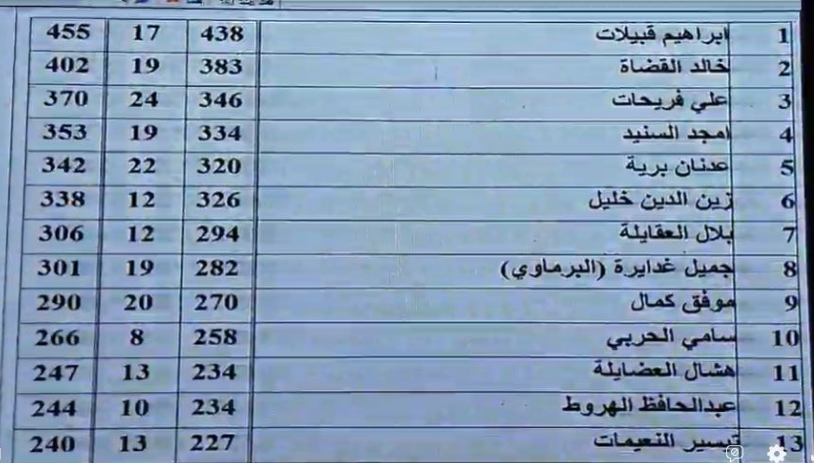 1 ابراهيم قبيلات 438 17 455
2 خالد القضاة 383 19 402
3 علي فريحات 346 24 370
4 امجد السنيد 334 19 353
5 عدنان برية 320 22 342
6 زين الدين خليل 326 12 338
7 بلال العقايلة 294 12 306
8 جميل غدايرة (البرماوي) 282 19 301
9 موفق كمال 270 20 290
10 سامي الحربي 258 8 266
11 هشال العضايلة 234 13 247
12 عبدالحافظ الهروط 234 10 244
13 تيسير النعيمات 227 13 240